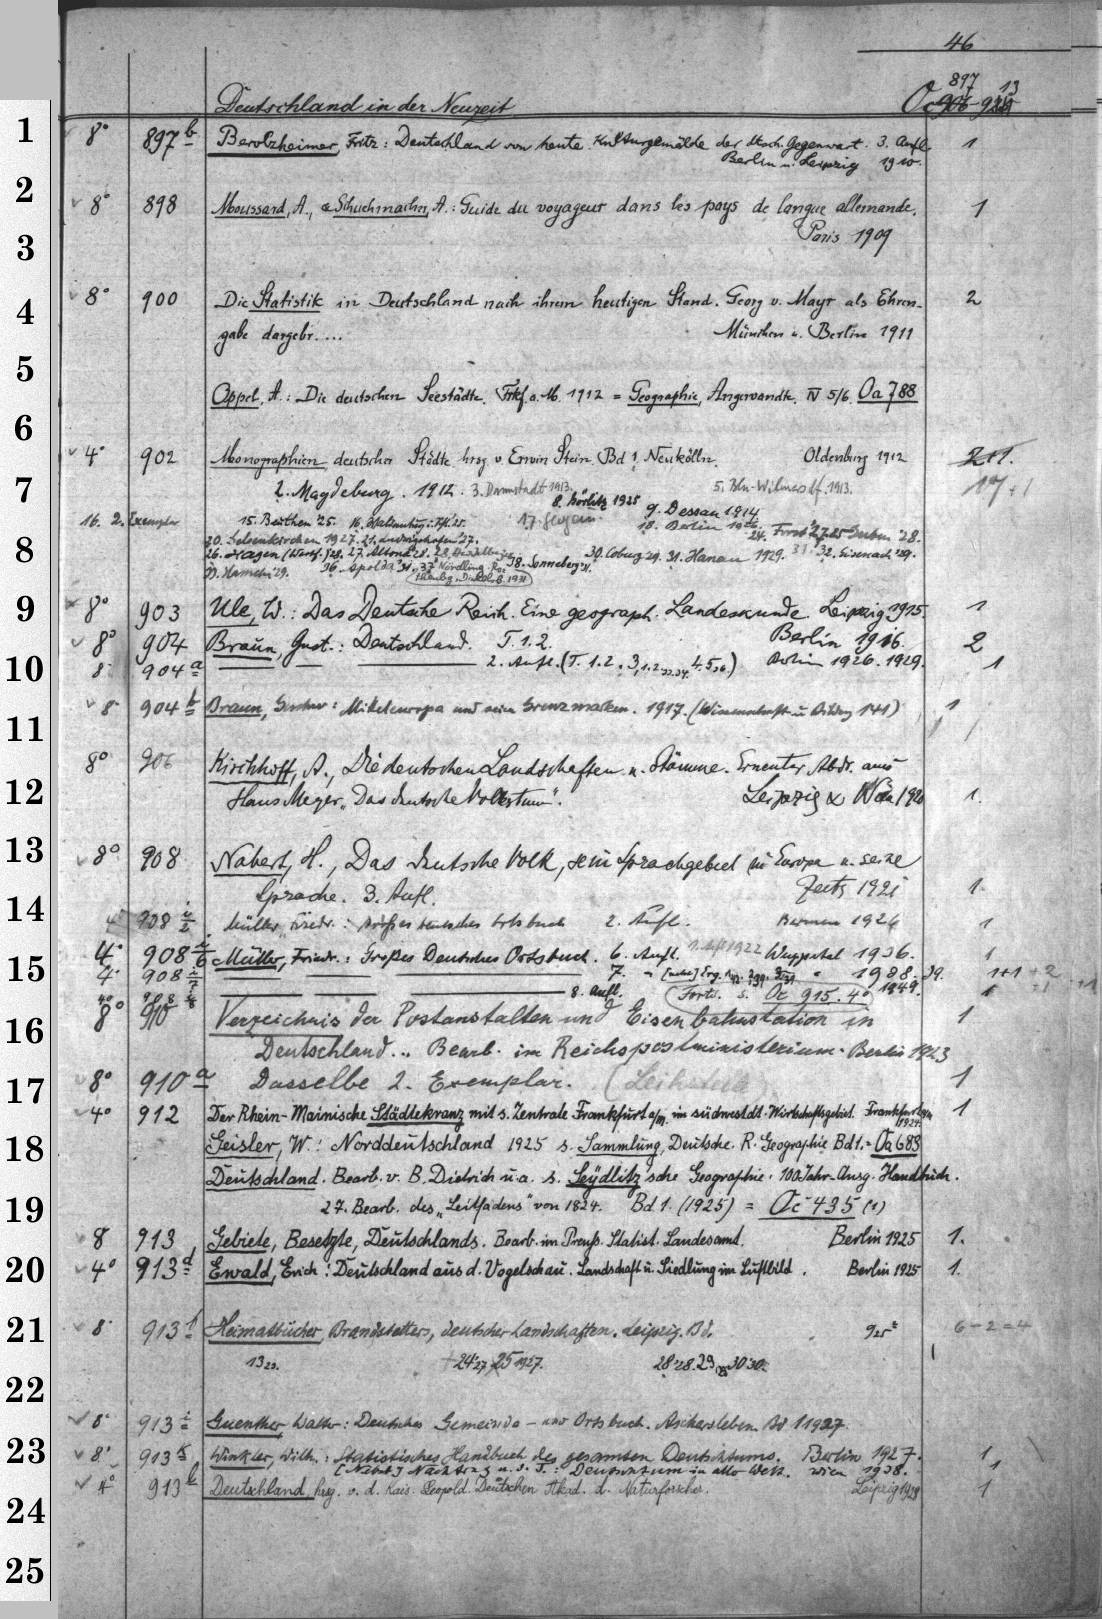 46
Deutschland in der Neuzeit
897 13
Oc
1 8° 897b Berolzheimer, Fritz: Deutschland von heute. Kulturgemälde der dtsch. Gegenwart. 3. Aufl. 1
Berlin u. Leipzig 1910.
2 8° 898 Moussard, A., & Schuchmachn, A.: Guide du voyageur dans les pays de langue allemande. 1
Paris 1909
3
4 8° 900 Die Statistik in Deutschland nach ihrem heutigen Stand. Georg v. Mayr als Ehren- 2
gabe dargebr. ... München u. Berlin 1911
5
Oppel, A.: Die deutschen Seestädte. Frkf. a. M. 1912 = Geographie, Angewandte. IV 5/6. Oa 788
6
4° 902 Monographien deutscher Städte hrsg v Erwin Stein. Bd 1. Neukölln. Oldenburg 1912 2+1.
7 2. Magdeburg. 1912. 3. Darmstadt 1913. 5. Bln-Wilmersdf. 1913. 17+1
8. Görlitz 1925 9. Dessau 1914
16. 2. Exemplar 15. Beuthen '25. 16. Waldenburg i. Schl '25. 18. Berlin 1926. 24. Forst '27. 25 Guben '28.
8 20. Gelsenkirchen 1927. 21. Ludwigshafen '27.
26. Hagen (Westf.) 28. 27. Altona '28. 30. Coburg 29. 31. Hanau 1929. 32. Eisenach '29.
Hameln '29. 36. Apolda '31. 37 Nördling. 38. Sonneberg '31.
9 8° 903 Ule, W.: Das Deutsche Reich. Eine geograph. Landeskunde. Leipzig 1915. 1
8° 904 Braun, Gust.: Deutschland. T. 1. 2. Berlin 1916. 2
10 8° 904a 2. Aufl. (T. 1. 2. 3, 4. 5. 6) Berlin 1926. 1929. 1
8° 904b Braun, Gustav: Mitteleuropa und seine Grenzmarken. 1917. (Wissenschaft u. Bildung 141) 1
11
8° 906 Kirchhoff, A., Die deutschen Landschaften u. Stämme. Erneuter Abdr. aus
12 Hans Meyer „Das deutsche Volkstum". Leipzig & Wien 1920 1.
13 8° 908 Nabert, H., Das deutsche Volk, sein Sprachgebiet in Europa u. seine
Sprache. 3. Aufl. Zeitz 1921 1.
14 4° 908 Müller, Friedr.: Großes deutsches Ortsbuch 2. Aufl. Barmen 1926 1
4° 908 Müller, Friedr.: Großes Deutsches Ortsbuch. 6. Aufl. Wuppertal 1936. 1
15 4° 908 7. 1938. 39. 1+1 +2
4° 908 8. Aufl. (Forts. s. Oc 915. 4°) 1949. 1 +1 +1
16 8° 910 Verzeichnis der Postanstalten und Eisenbahnstation in 1
Deutschland... Bearb. im Reichspostministerium. Berlin 1923
17 8° 910a Dasselbe 2. Exemplar. (Leihstück) 1
4° 912 Der Rhein-Mainische Städtekranz mit s. Zentrale Frankfurt a/M. im südwestdt. Wirtschaftsgebiet. Frankfurt a/M 1924. 1
18 Geisler, W.: Norddeutschland 1925 s. Sammlung, Deutsche. R: Geographie Bd 1. = Oa 683
Deutschland. Bearb. v. B. Dietrich u. a. s. Seydlitz'sche Geographie. 100 Jahr-Ausg. Handbuch.
19 27. Bearb. des „Leitfadens" von 1824. Bd. 1. (1925) = Oc 435 (1)
8 913 Gebiete, Besetzte, Deutschlands. Bearb. im Preuß. Statist. Landesamt. Berlin 1925 1.
20 4° 913d Ewald, Erich: Deutschland aus d. Vogelschau. Landschaft u. Siedlung im Luftbild. Berlin 1925 1.
21 8° 913f Heimatbücher, Brandstetters, deutscher Landschaften. Leipzig. Bd. 6-2=4
13 23. 24 '27 25 1927. 28 '28. 29 30 '30.
22
8° 913i Guenther, Walter: Deutsches Gemeinde- und Ortsbuch. Aschersleben Bd 1 1927.
23 8° 913k Winkler, Wilh.: Statistisches Handbuch des gesamten Deutschtums. Berlin 1927. 1
[Nebst] Nachtrag u. d. T.: Deutschtum in aller Welt. Wien 1938. 1
4° 913l Deutschland, hrsg. v. d. Kais. Leopold. Deutschen Akad. d. Naturforscher. Leipzig 1928 1
24
25